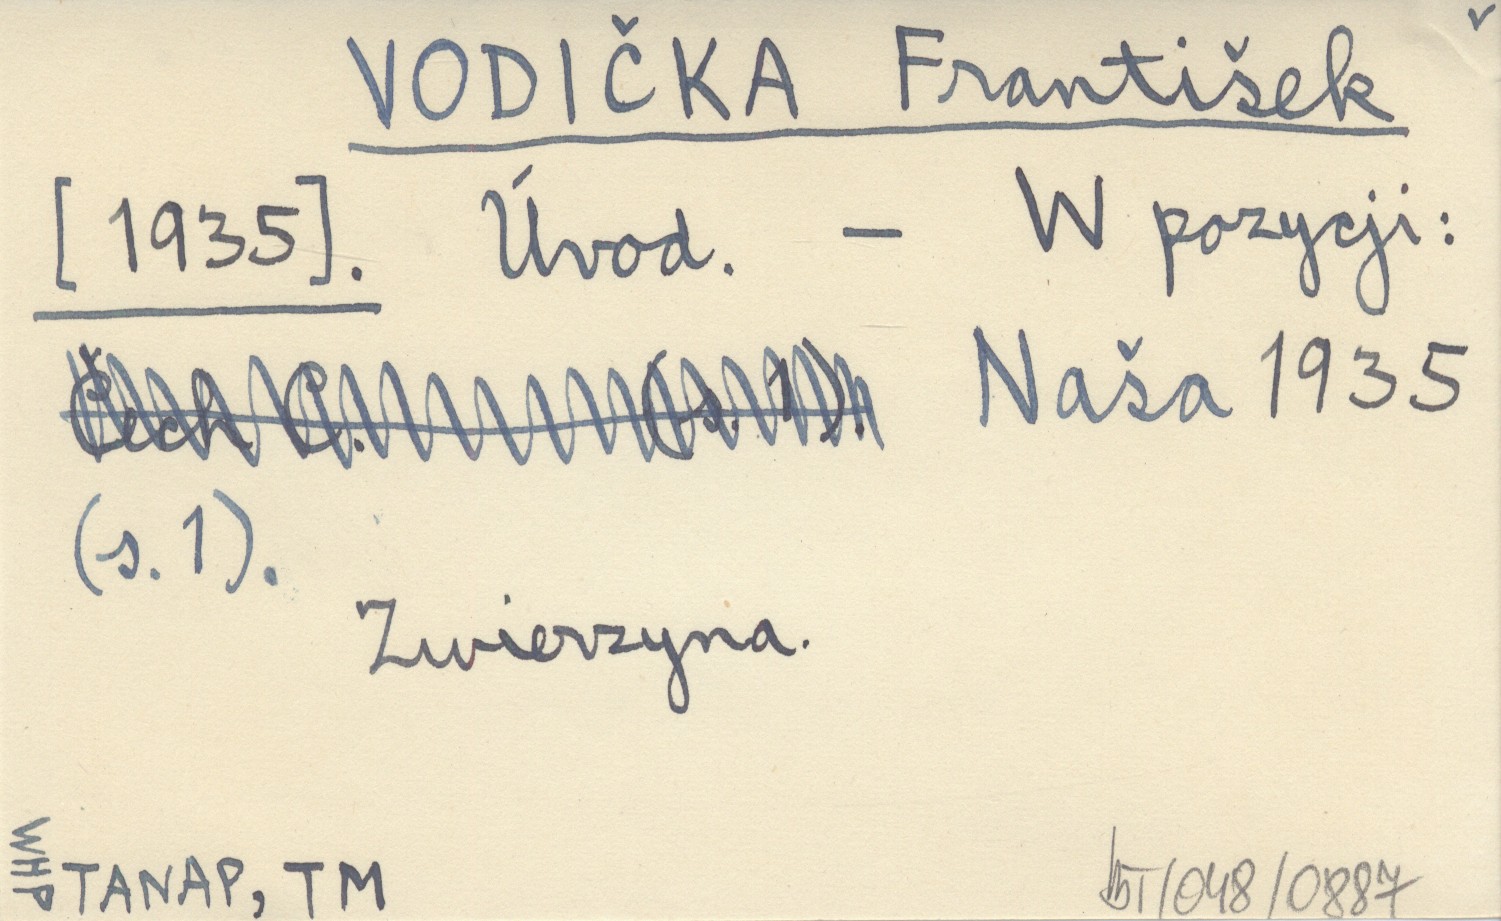 VODIČKA František
[1935]. Úvod. — W pozycji:
Čech C. (s. 1). Naša 1935
(s. 1).
Zwierzyna.
WHP TANAP, TM
BT/048/0887